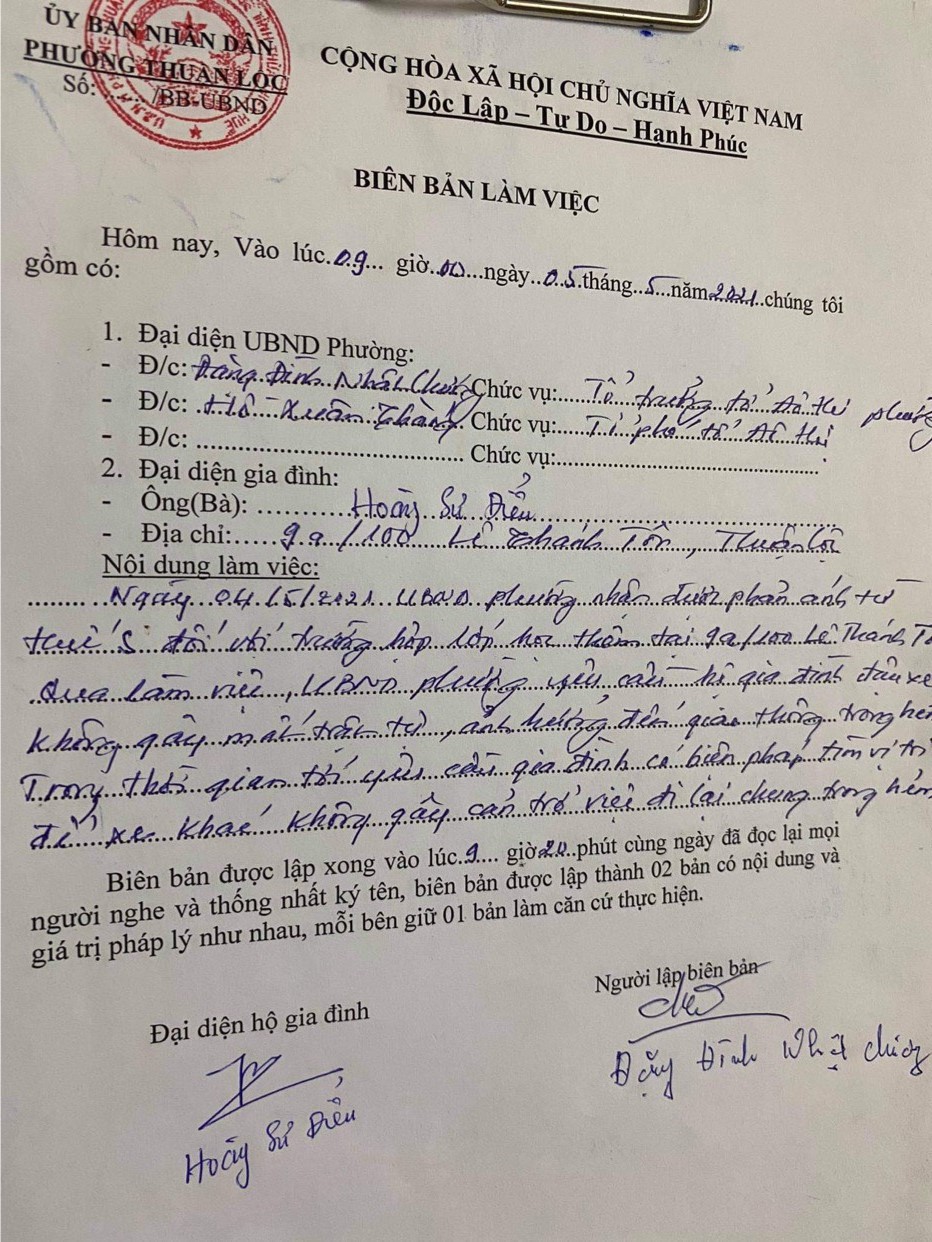 ỦY BAN NHÂN DÂN
PHƯỜNG THUẬN LỘC
Số: ...... /BB-UBND
CỘNG HÒA XÃ HỘI CHỦ NGHĨA VIỆT NAM
Độc Lập – Tự Do – Hạnh Phúc
BIÊN BẢN LÀM VIỆC
Hôm nay, Vào lúc.09... giờ..00...ngày..05.tháng..5...năm.2021..chúng tôi
gồm có:
1. Đại diện UBND Phường:
- Đ/c: Đặng Đình Nhật Chương Chức vụ:.....Tổ trưởng tổ đô thị phường
- Đ/c: Hồ Xuân Chức vụ:.....Tổ phó tổ đô thị
- Đ/c: .................................. Chức vụ:..................................
2. Đại diện gia đình:
- Ông(Bà): ............Hoàng Sứ Diểu..................
- Địa chỉ:.....9a/100 Lê Thánh Tôn, Thuận Lộc
Nội dung làm việc:
..........Ngày 04/5/2021 UBND phường nhận được phản ánh từ
đối với trường hợp lớp học thêm tại 9a/100 Lê Thánh T
Qua làm việc, UBND phường yêu cầu hộ gia đình đậu xe
không gây mất trật tự, ảnh hưởng đến giao thông trong hẻm
Trong thời gian tới yêu cầu gia đình có biện pháp tìm vị trí
để xe khác không gây cản trở việc đi lại chung trong hẻm
Biên bản được lập xong vào lúc.9.... giờ 20..phút cùng ngày đã đọc lại mọi
người nghe và thống nhất ký tên, biên bản được lập thành 02 bản có nội dung và
giá trị pháp lý như nhau, mỗi bên giữ 01 bản làm căn cứ thực hiện.
Người lập biên bản
Đại diện hộ gia đình
Đặng Đình Nhật Chương
Hoàng Sứ Diểu